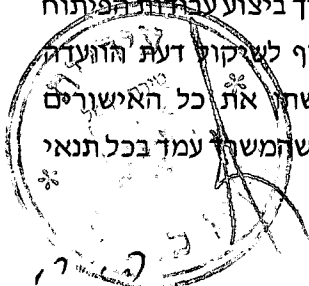 ביצוע עבודות הפיתוח
לשיקול דעת הוועדה
את כל האישורים
שהמשרד עמד בכל תנאי